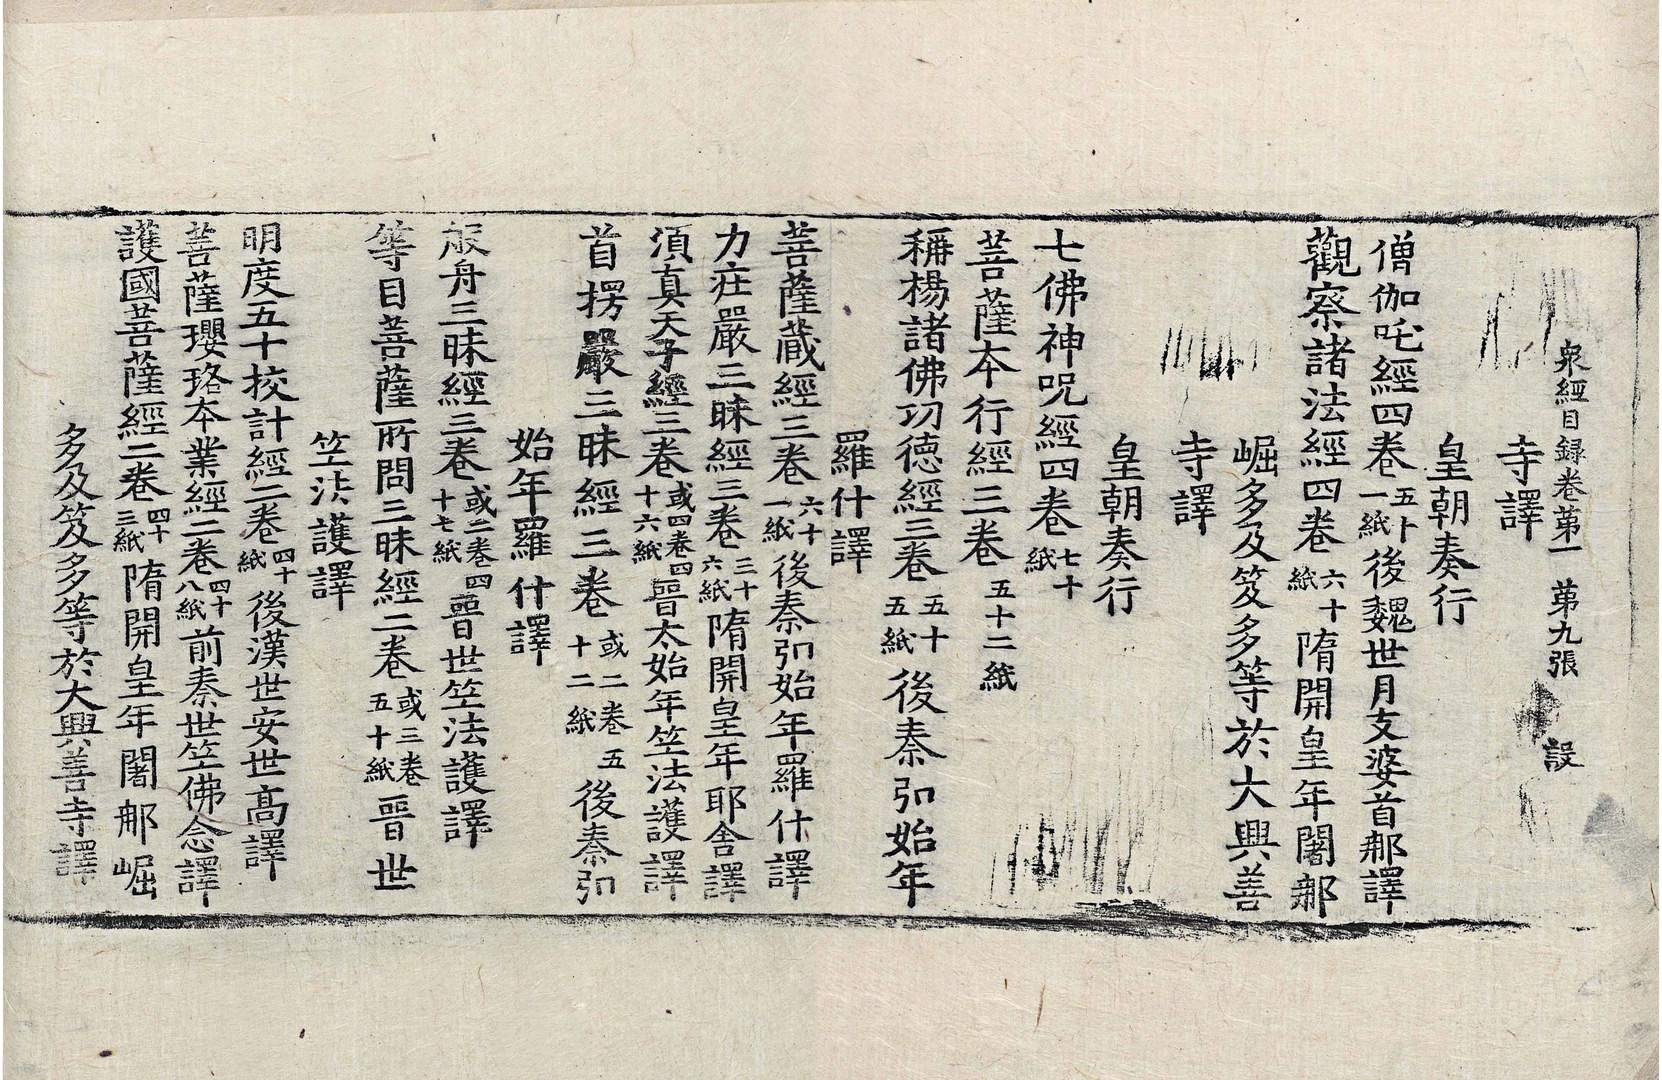 衆經目録卷苐一　苐九張　設
寺譯
皇朝奏行
僧伽吒經四卷五十一紙後魏世月支婆首那譯
觀察諸法經四卷六十紙隋開皇年闍那
崛多及笈多等於大興善
寺譯
皇朝奏行
七佛神呪經四卷七十紙
菩薩本行經三卷五十二紙
稱楊諸佛功德經三卷五十五紙後秦弘始年
羅什譯
菩薩藏經三卷六十一紙後秦弘始年羅什譯
力莊嚴三昧經三卷三十六紙隋開皇年耶舍譯
須真天子經三卷或四卷四十六紙晉太始年竺法護譯
首楞嚴三昧經三卷或二卷五十二紙後秦弘
始年羅什譯
般舟三昧經三卷或二卷四十七紙晉世竺法護譯
等目菩薩所問三昧經二卷或三卷五十紙晉世
竺法護譯
明度五十挍計經二卷四十紙後漢世安世高譯
菩薩瓔珞本業經二卷四十八紙前秦世竺佛念譯
護國菩薩經二卷四十三紙隋開皇年闍那崛
多及笈多等於大興善寺譯